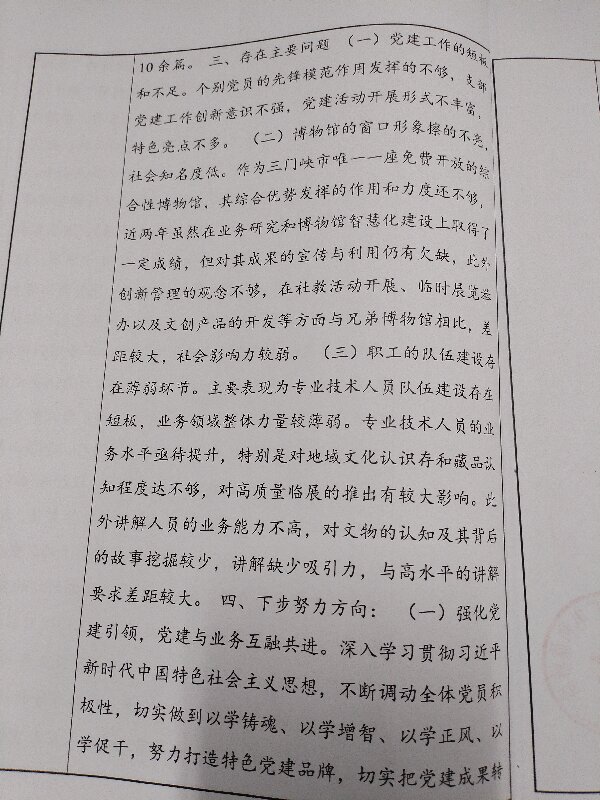 10余篇。 三、存在主要问题 （一）党建工作的短板
和不足。个别党员的先锋模范作用发挥的不够，支部
党建工作创新意识不强，党建活动开展形式不丰富，
特色亮点不多。 （二）博物馆的窗口形象擦的不亮，
社会知名度低。作为三门峡市唯一一座免费开放的综
合性博物馆，其综合优势发挥的作用和力度还不够，
近两年虽然在业务研究和博物馆智慧化建设上取得了
一定成绩，但对其成果的宣传与利用仍有欠缺，此外
创新管理的观念不够，在社教活动开展、临时展览举
办以及文创产品的开发等方面与兄弟博物馆相比，差
距较大，社会影响力较弱。 （三）职工的队伍建设存
在薄弱环节。主要表现为专业技术人员队伍建设存在
短板，业务领域整体力量较薄弱。专业技术人员的业
务水平亟待提升，特别是对地域文化认识存和藏品认
知程度达不够，对高质量临展的推出有较大影响。此
外讲解人员的业务能力不高，对文物的认知及其背后
的故事挖掘较少，讲解缺少吸引力，与高水平的讲解
要求差距较大。 四、下步努力方向： （一）强化党
建引领，党建与业务互融共进。深入学习贯彻习近平
新时代中国特色社会主义思想，不断调动全体党员积
极性，切实做到以学铸魂、以学增智、以学正风、以
学促干，努力打造特色党建品牌，切实把党建成果转